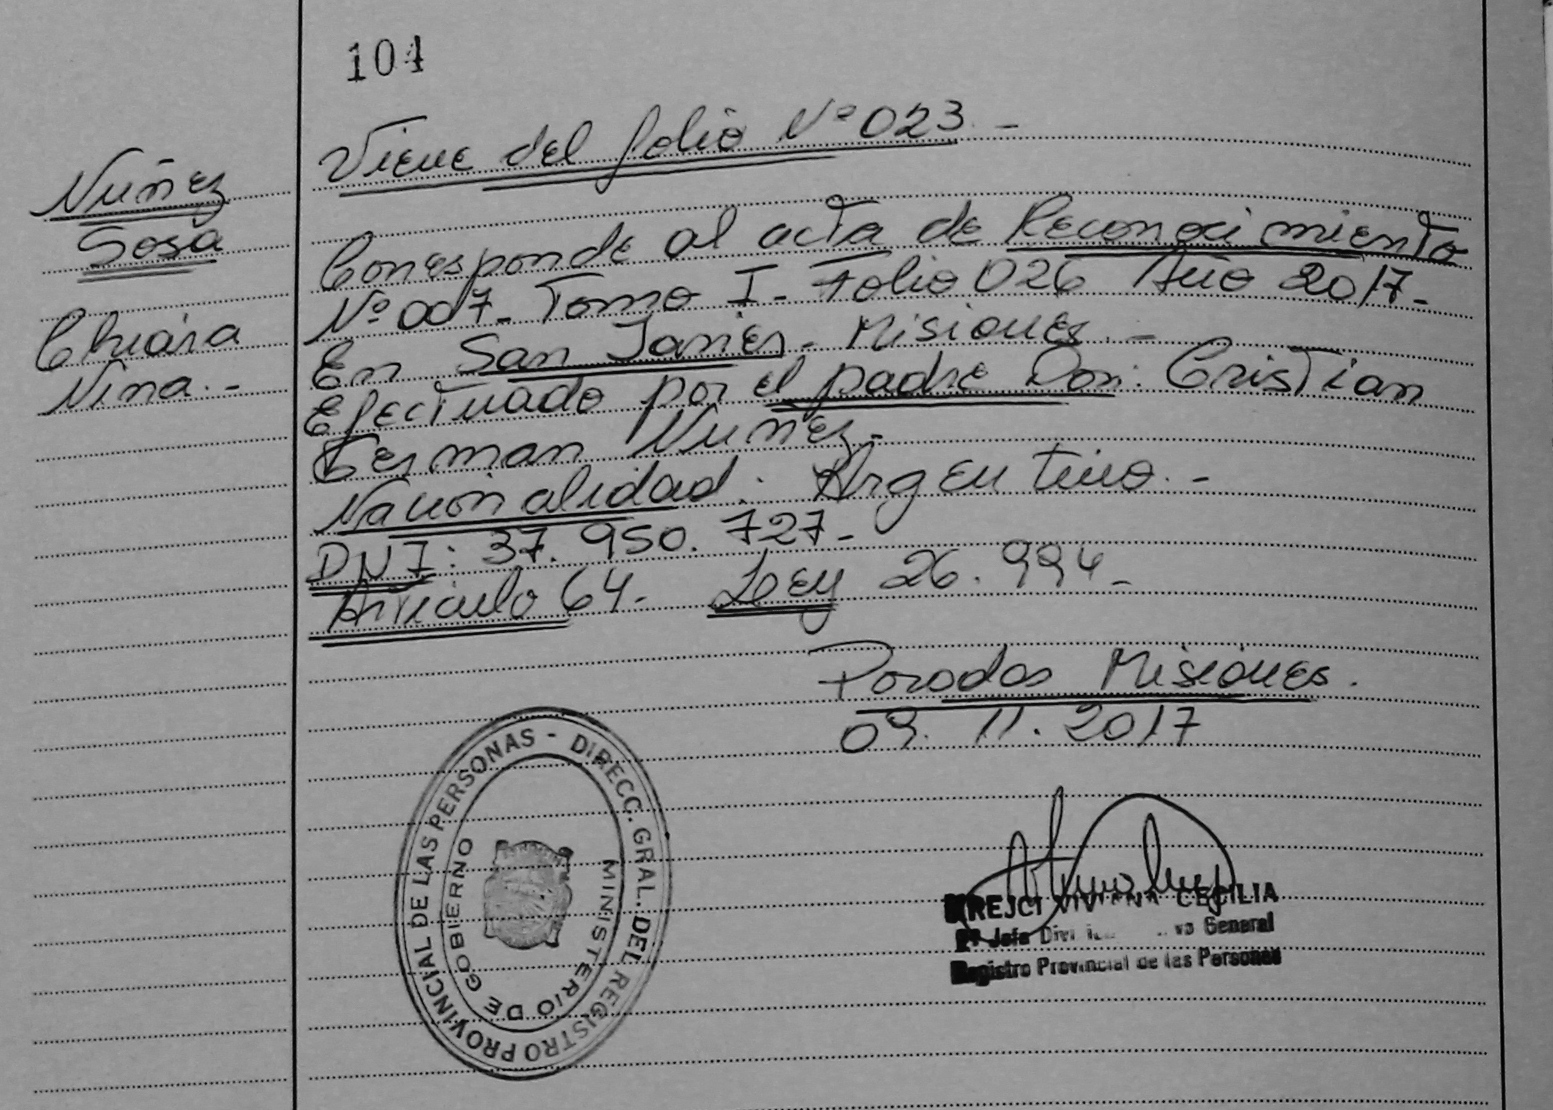 104
Viene del folio Nº 023. -
Nuñez
Sosa
Chiara
Nina. -
Corresponde al acta de Reconocimiento
Nº 007. Tomo I - Folio 026 Año 2017 -
En San Javier - Misiones. -
Efectuado por el padre Don: Cristian
German Nuñez. -
Nacionalidad: Argentino. -
DNI: 37.950.727 -
Artículo 64 - Ley 26.994 -
Posadas Misiones.
09.11.2017
REGISTRO PROVINCIAL DE LAS PERSONAS - DIRECC. GRAL. DEL
MINISTERIO DE GOBIERNO
KREJCI VIVIANA CECILIA
Jefe General
Registro Provincial de las Personas